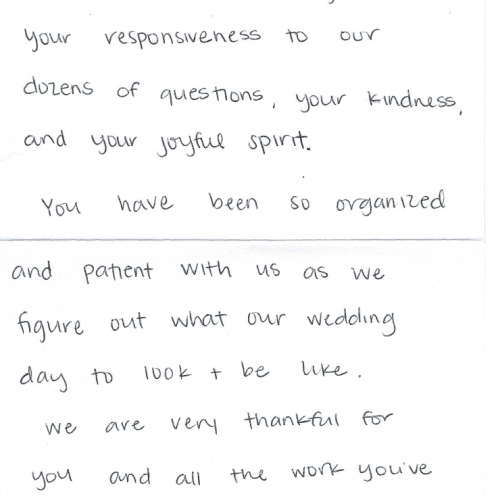 your responsiveness to our
dozens of questions, your kindness,
and your joyful spirit.
You have been so organized
and patient with us as we
figure out what our wedding
day to look + be like.
we are very thankful for
you and all the work you've